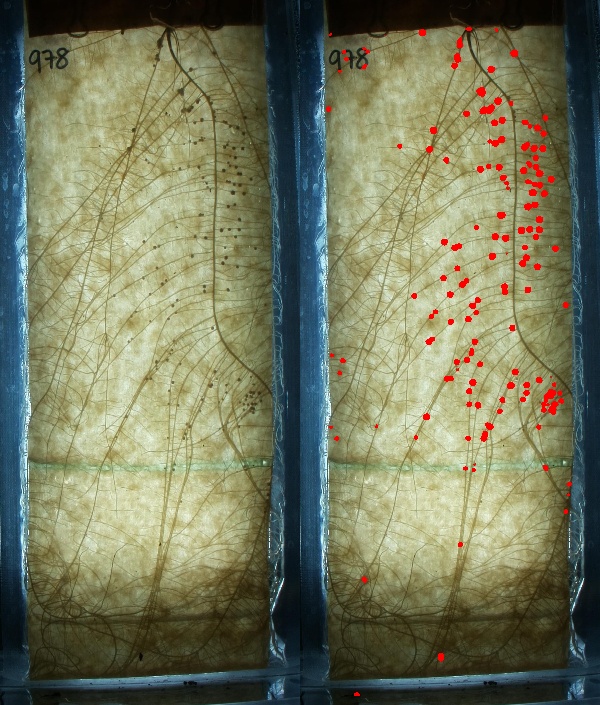 978
978